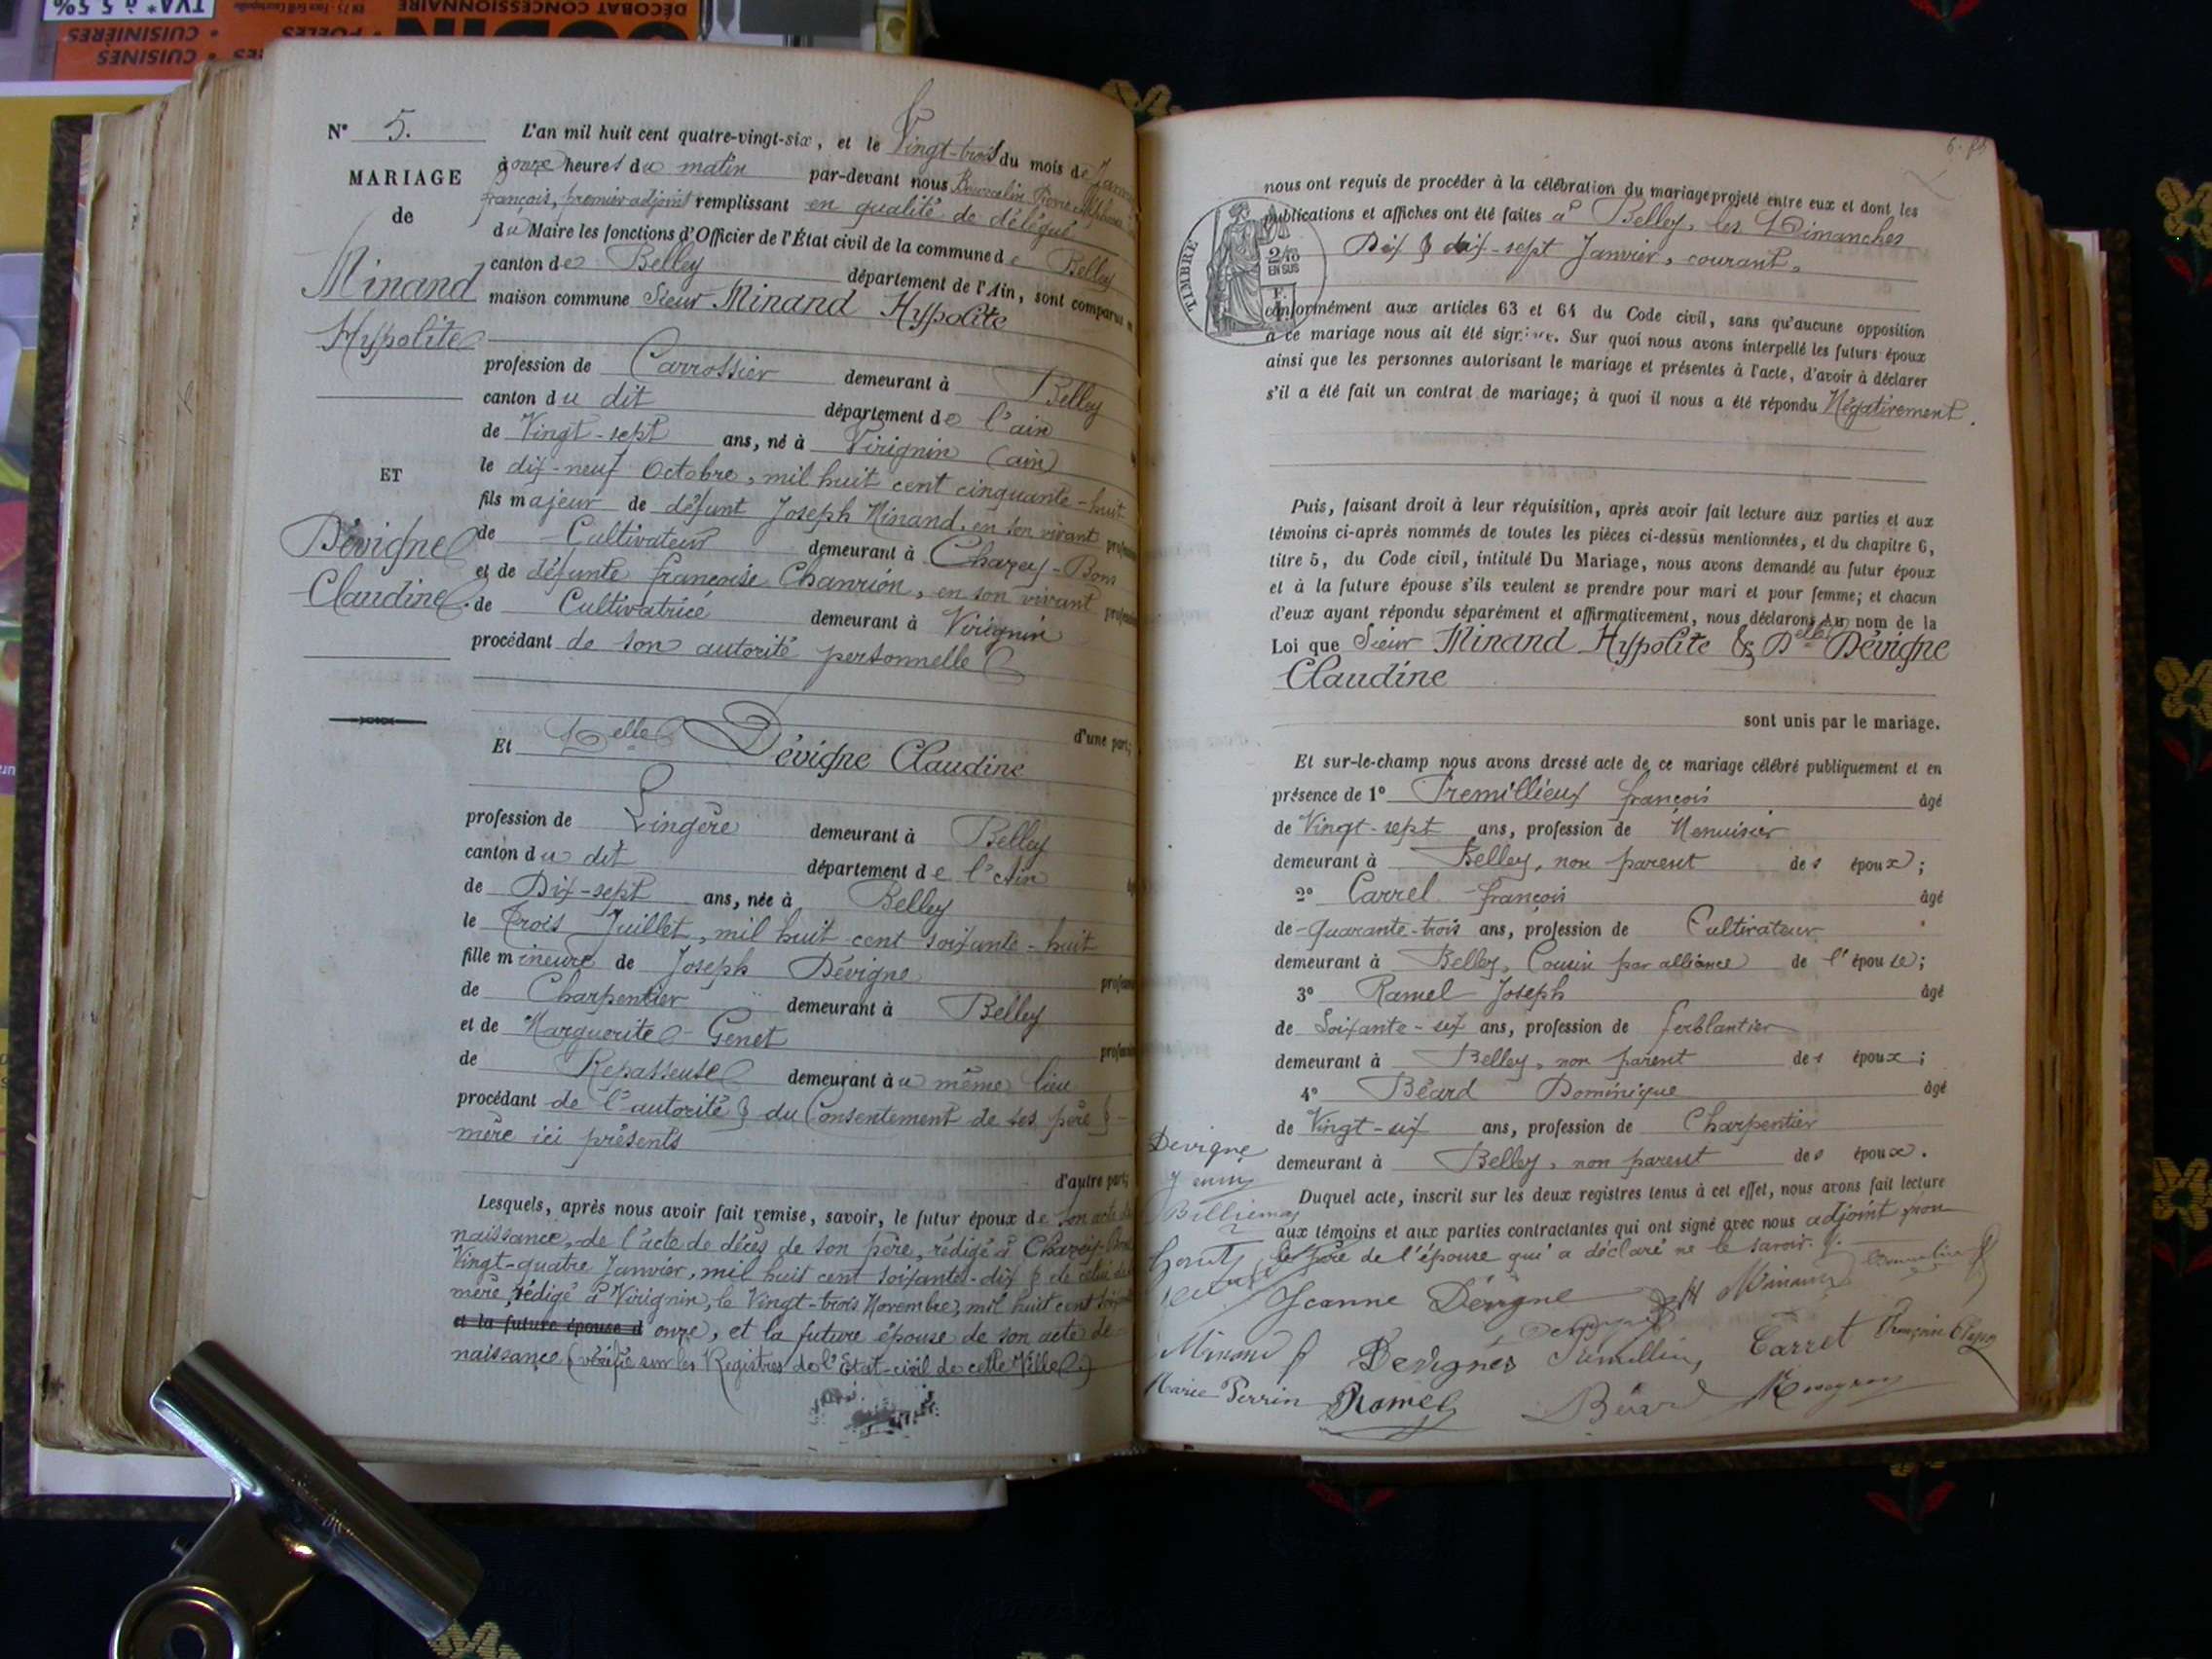 N° 5.
MARIAGE
de
Minand
Hypolite
ET
Dévigne
Claudine.
L'an mil huit cent quatre-vingt-six, et le Vingt-trois du mois de
à onze heures du matin par-devant nous
françois, premier adjoint remplissant en qualité de délégué
du Maire les fonctions d'Officier de l'État civil de la commune de Belley
canton de Belley département de l'Ain, sont comparus
maison commune Sieur Minand Hypolite
profession de Carrossier demeurant à Belley
canton du dit département de l'ain
de Vingt-sept ans, né à Virignin (ain)
le dix-neuf Octobre, mil huit cent cinquante-huit
fils majeur de défunt Joseph Minand, en son vivant
de Cultivateur demeurant à Chazey-Bons
et de défunte françoise Chanrion, en son vivant
de Cultivatrice demeurant à Virignin
procédant de son autorité personnelle
d'une part;
Et Delle Dévigne Claudine
profession de Lingère demeurant à Belley
canton du dit département de l'Ain
de Dix-sept ans, née à Belley
le Trois Juillet, mil huit cent soixante-huit
fille mineure de Joseph Dévigne
de Charpentier demeurant à Belley
et de Marguerite Genet
de Repasseuse demeurant au même lieu
procédant de l'autorité & du Consentement de ses père &
mère ici présents
d'autre part;
Lesquels, après nous avoir fait remise, savoir, le futur époux de son acte de
naissance, de l'acte de décès de son père, rédigé à Chazey-Bons
Vingt-quatre Janvier, mil huit cent soixante-dix & de celui de
mère, rédigé à Virignin, le Vingt-trois Novembre, mil huit cent
et la future épouse d onze, et la future épouse de son acte de
naissance (vérifié sur les Registres de l'Etat-civil de cette Ville.)
nous ont requis de procéder à la célébration du mariage projeté entre eux et dont les
publications et affiches ont été faites à Belley, les Dimanches
Dix & dix-sept Janvier, courant,
TIMBRE
2/10
EN SUS
conformément aux articles 63 et 64 du Code civil, sans qu'aucune opposition
à ce mariage nous ait été signifiée. Sur quoi nous avons interpellé les futurs époux
ainsi que les personnes autorisant le mariage et présentes à l'acte, d'avoir à déclarer
s'il a été fait un contrat de mariage; à quoi il nous a été répondu Négativement.
Puis, faisant droit à leur réquisition, après avoir fait lecture aux parties et aux
témoins ci-après nommés de toutes les pièces ci-dessus mentionnées, et du chapitre 6,
titre 5, du Code civil, intitulé Du Mariage, nous avons demandé au futur époux
et à la future épouse s'ils veulent se prendre pour mari et pour femme; et chacun
d'eux ayant répondu séparément et affirmativement, nous déclarons Au nom de la
Loi que Sieur Minand Hypolite & Delle Dévigne
Claudine
sont unis par le mariage.
Et sur-le-champ nous avons dressé acte de ce mariage célébré publiquement et en
présence de 1° Tremillieux françois âgé
de Vingt-sept ans, profession de Menuisier
demeurant à Belley, non parent des époux;
2° Carrel françois âgé
de Quarante-trois ans, profession de Cultivateur
demeurant à Belley, Cousin par alliance de l'épouse;
3° Ramel Joseph âgé
de Soixante-six ans, profession de ferblantier
demeurant à Belley, non parent des époux;
4° Béard Dominique âgé
de Vingt-six ans, profession de Charpentier
demeurant à Belley, non parent des époux.
Duquel acte, inscrit sur les deux registres tenus à cet effet, nous avons fait lecture
aux témoins et aux parties contractantes qui ont signé avec nous adjoint, non
le père de l'épouse qui a déclaré ne le savoir.
Devigne
Jeanne Dévigne H Minand
Minand Devignes Carret
Marie Perrin Ramel Béard
DÉCOBAT CONCESSIONNAIRE
CUISINIÈRES
CUISINES
TVA à 5,5%